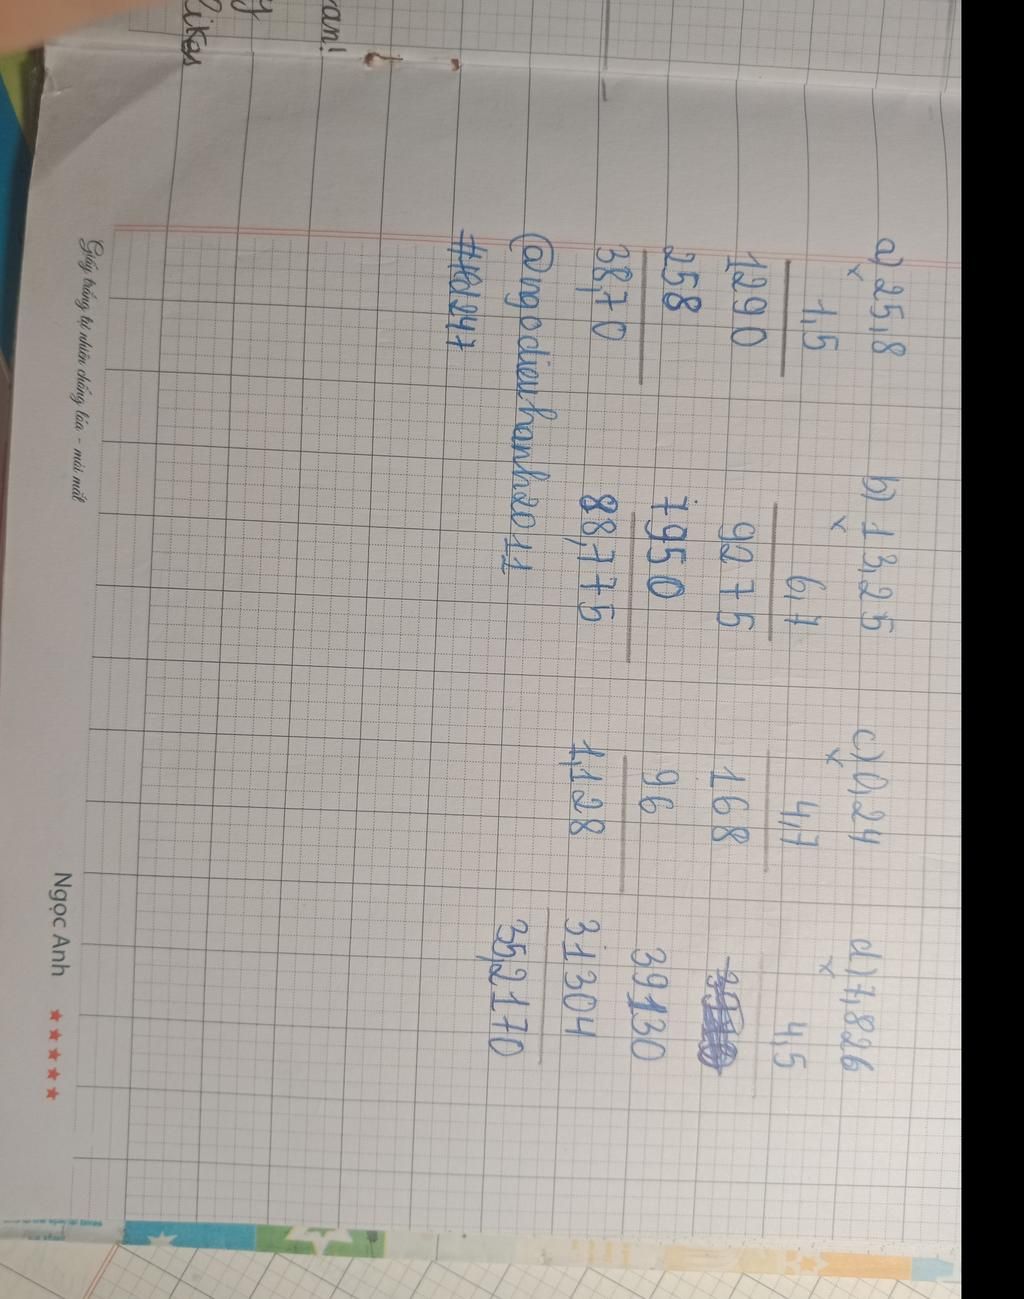 a) 25,8 b) 13,25 c) 0,24 d) 7,826
x x x x
1,5 6,7 4,7 4,5
1290 9275 168
258 7950 96 39130
38,70 88,775 1,128 31304
@ngodieuhanh2011 35,2170
#HĐ247
Giấy trắng tự nhiên chống lóa - mỏi mắt
Ngọc Anh